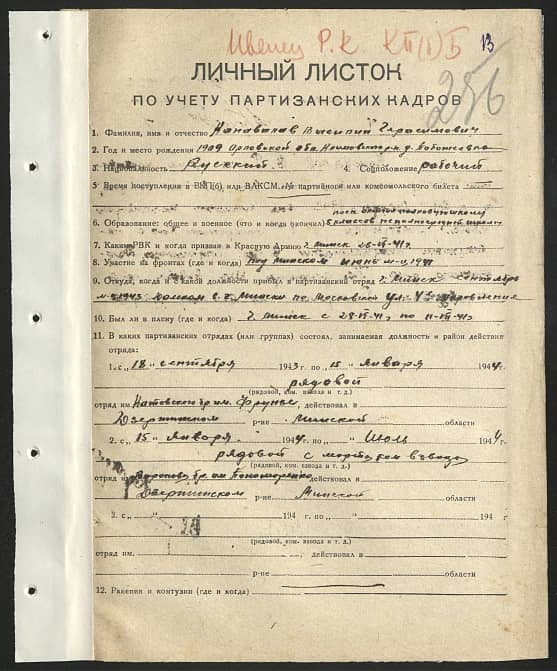 Ивенец Р.К. КП(б)Б 13
256
ЛИЧНЫЙ ЛИСТОК
ПО УЧЕТУ ПАРТИЗАНСКИХ КАДРОВ
1. Фамилия, имя и отчество Канавалов Василий Герасимович
2. Год и место рождения 1909 Орловской обл.
3. Национальность Русский 4. Соцположение рабочий
5. Время поступления в ВКП(б) или ВЛКСМ, № партийного или комсомольского билета
6. Образование: общее и военное (что и когда окончил) 5 классов
7. Каким РВК и когда призван в Красную Армию г. Минск 26-VI-41г.
8. Участие на фронтах (где и когда) под Минском июнь м-ц 1941
9. Откуда, когда и в какой должности прибыл в партизанский отряд г. Минск сентябрь
м-ц 1943
10. Был ли в плену (где и когда) г. Минск с 28-VI-41, по 11-VII-41г
11. В каких партизанских отрядах (или группах) состоял, занимаемая должность и район действия
отряда:
1. с „18“ сентября 1943 г. по „15“ января 1944 г.
рядовой
(рядовой, ком. взвода и т. д.)
отряд им. бр. им. Фрунзе, действовал в
Дзержинском р-не Минской области
2. с „15“ января 1944 г. по „ “ Июль 1944 г.
рядовой
(рядовой, ком. взвода и т. д.)
отряд им. бр. им. Пономаренко действовал в
Дзержинском р-не Минской области
3. с „ “ 194 г. по „ “ 194 г
(рядовой, ком. взвода и т. д.)
отряд им. , действовал в
р-не области
12. Ранения и контузии (где и когда)